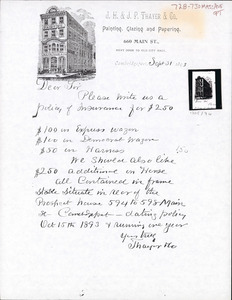 J. H. & J. P. THAYER & CO.
Painting, Glazing and Papering.
680 MAIN ST.
Cambridgeport Sept 21 189
Dear Sir
Please write us a
policy of Insurance for $250
$100 on Express wagon
$100 on Democrat wagon
$50 on Harness
We should also like
$250 additional on Horse
all contained in frame
Stable Situate in rear of the
Prospect House 594 to 598 Main
St Cambdgpt - dating policy
Oct 15th 1893 & running one year
Yrs truly
Thayer & Co